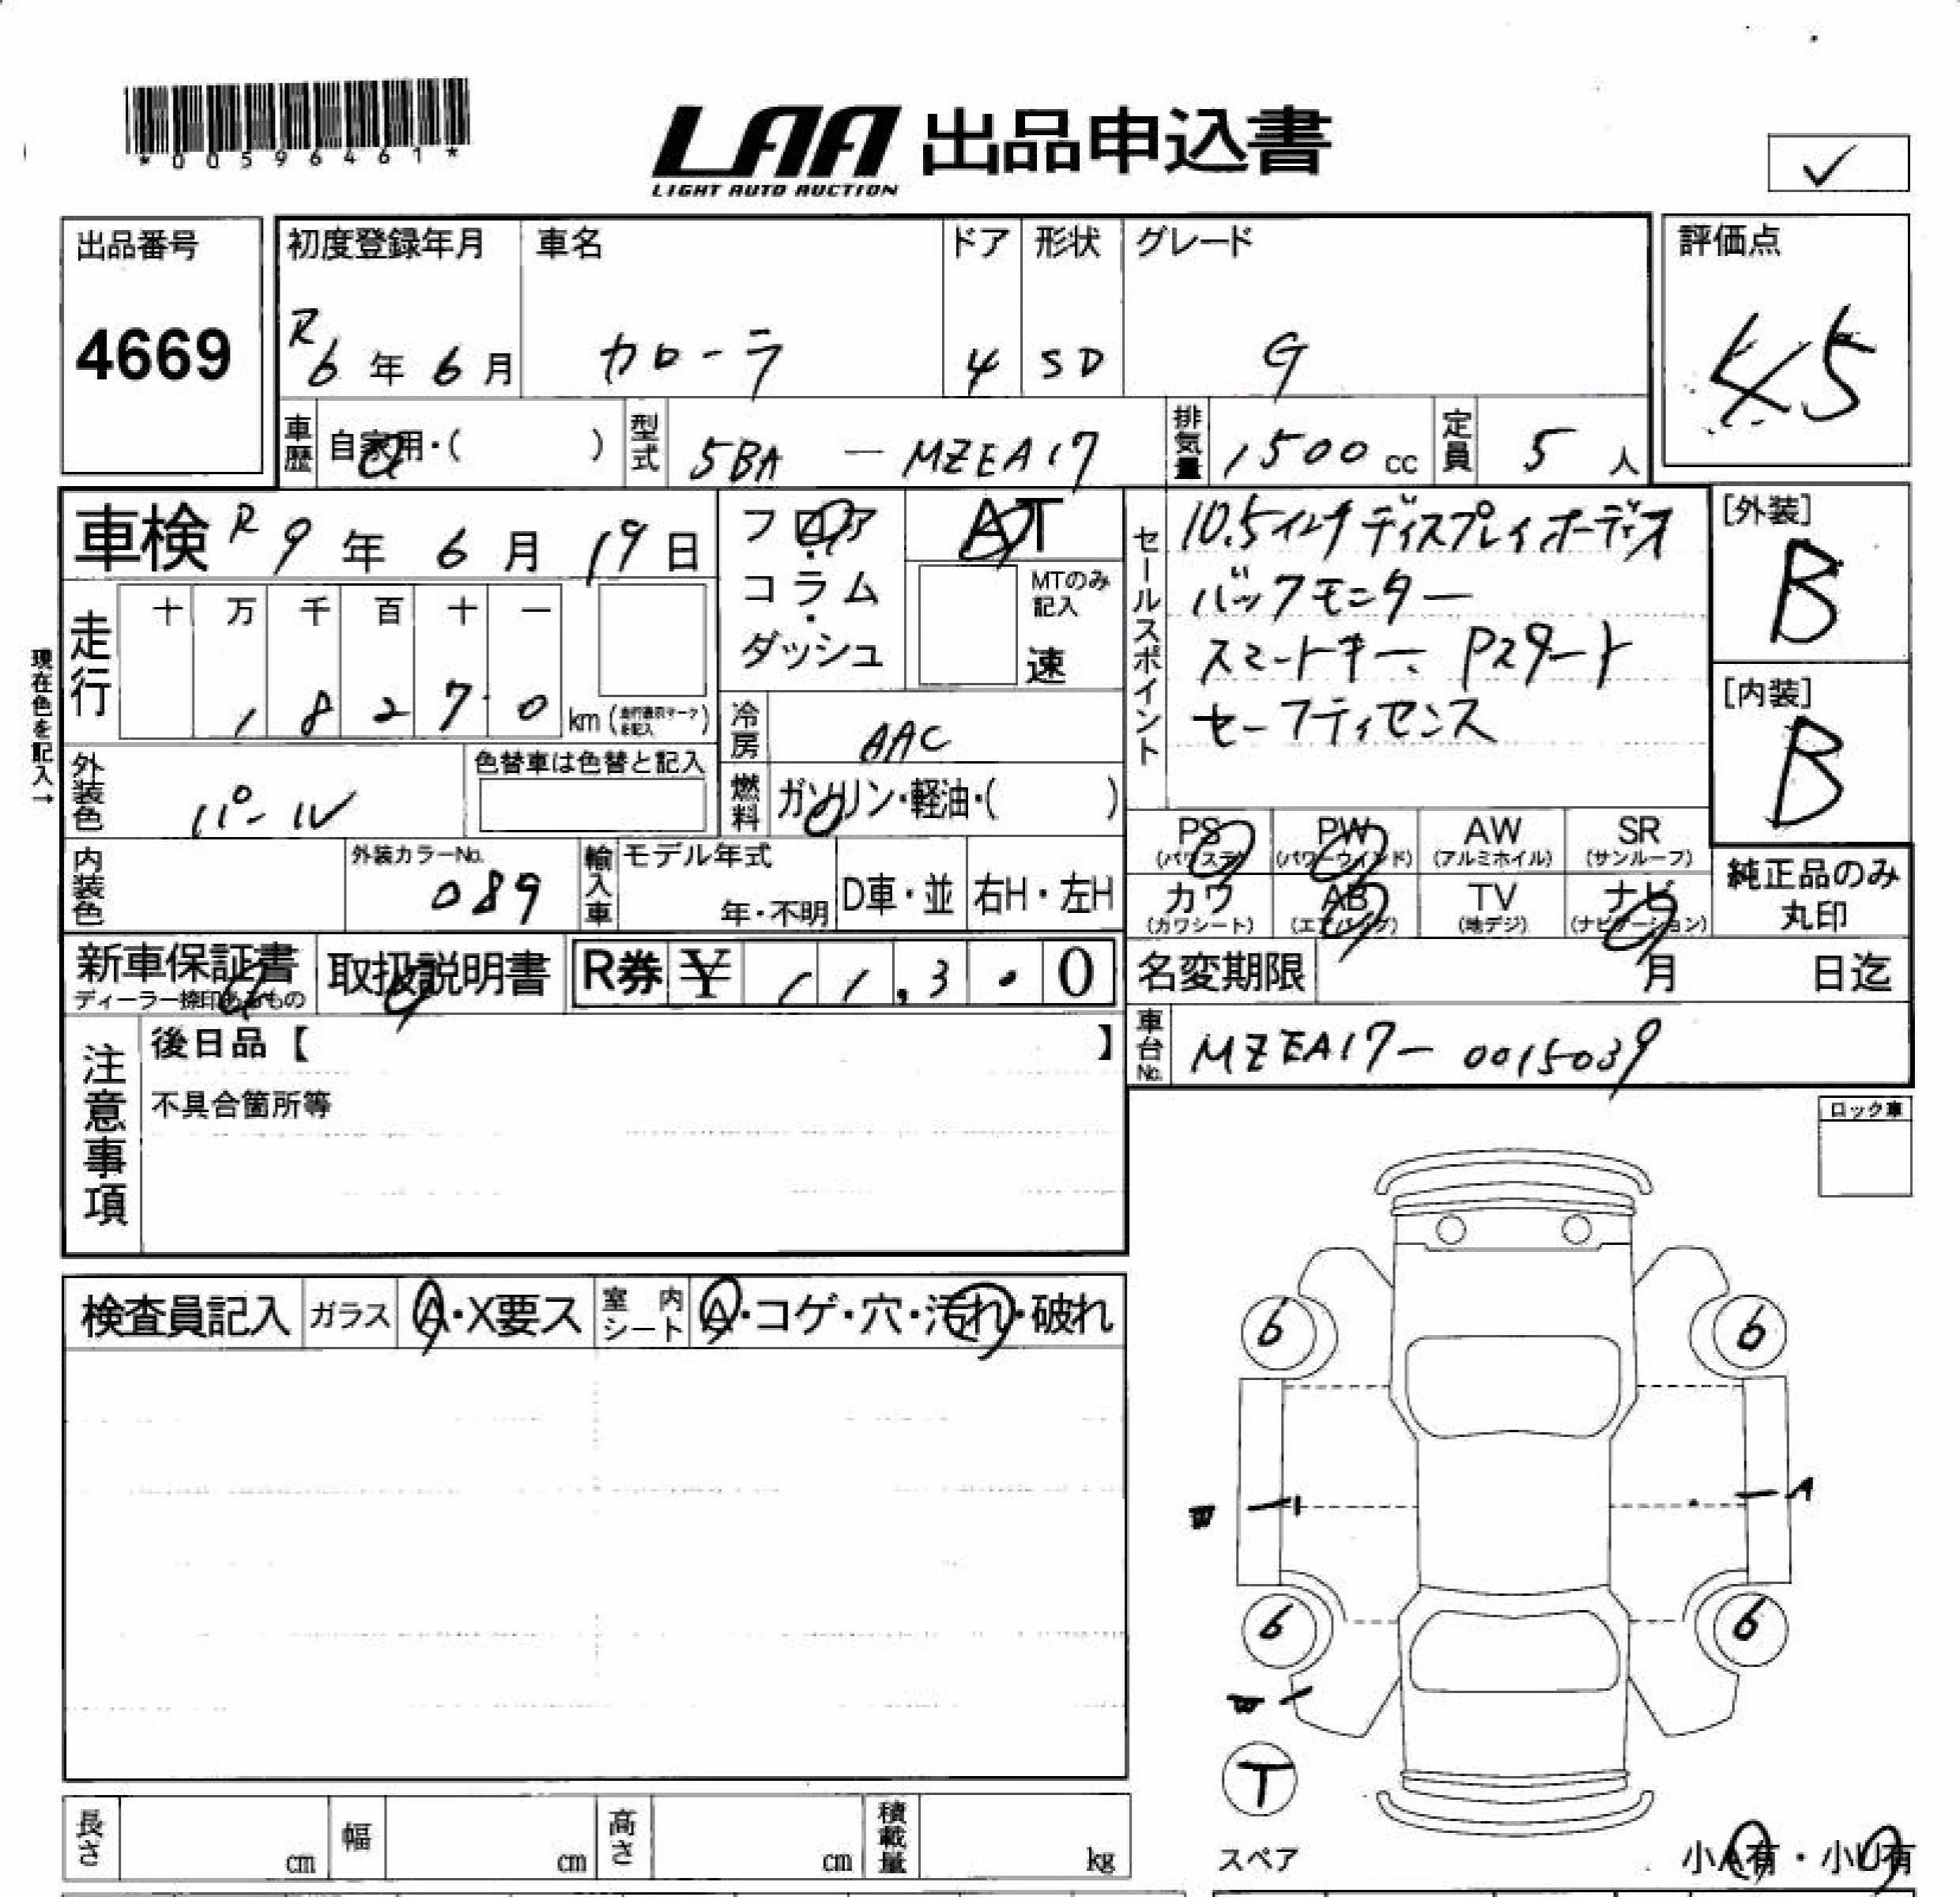 *00596461*
LAA 出品申込書
LIGHT AUTO AUCTION
✓
出品番号
4669
初度登録年月
R6年6月
車名
カローラ
ドア
4
形状
SD
グレード
G
評価点
4.5
車歴
自家用・( )
型式
5BA — MZEA17
排気量
1500cc
定員
5人
車検 R9年6月19日
フロア・コラム・ダッシュ
AT
MTのみ記入
速
セールスポイント
10.5インチディスプレイオーディオ
バックモニター
スマートキー Pスタート
セーフティセンス
[外装]
B
[内装]
B
現在色を記入→
走行
十 万 千 百 十 一
1 8 2 7 0 km
冷房
AAC
外装色
パール
色替車は色替と記入
燃料
ガソリン・軽油・( )
内装色
外装カラーNo.
089
輸入車
モデル年式
年・不明
D車・並
右H・左H
PS
(パワステ)
PW
(パワーウィンド)
AW
(アルミホイル)
SR
(サンルーフ)
カワ
(カワシート)
AB
(エアバッグ)
TV
(地デジ)
ナビ
(ナビゲーション)
純正品のみ
丸印
新車保証書
ディーラー捺印あるもの
取扱説明書
R券 ¥ 11,3・0
名変期限 月 日迄
車台No.
MZEA17－0015039
注意事項
後日品【 】
不具合箇所等
ロック車
検査員記入
ガラス
A・X要ス
室内シート
A・コゲ・穴・汚れ・破れ
6
6
A
6
6
T
スペア
小A有・小U有
長さ cm
幅 cm
高さ cm
積載量 kg